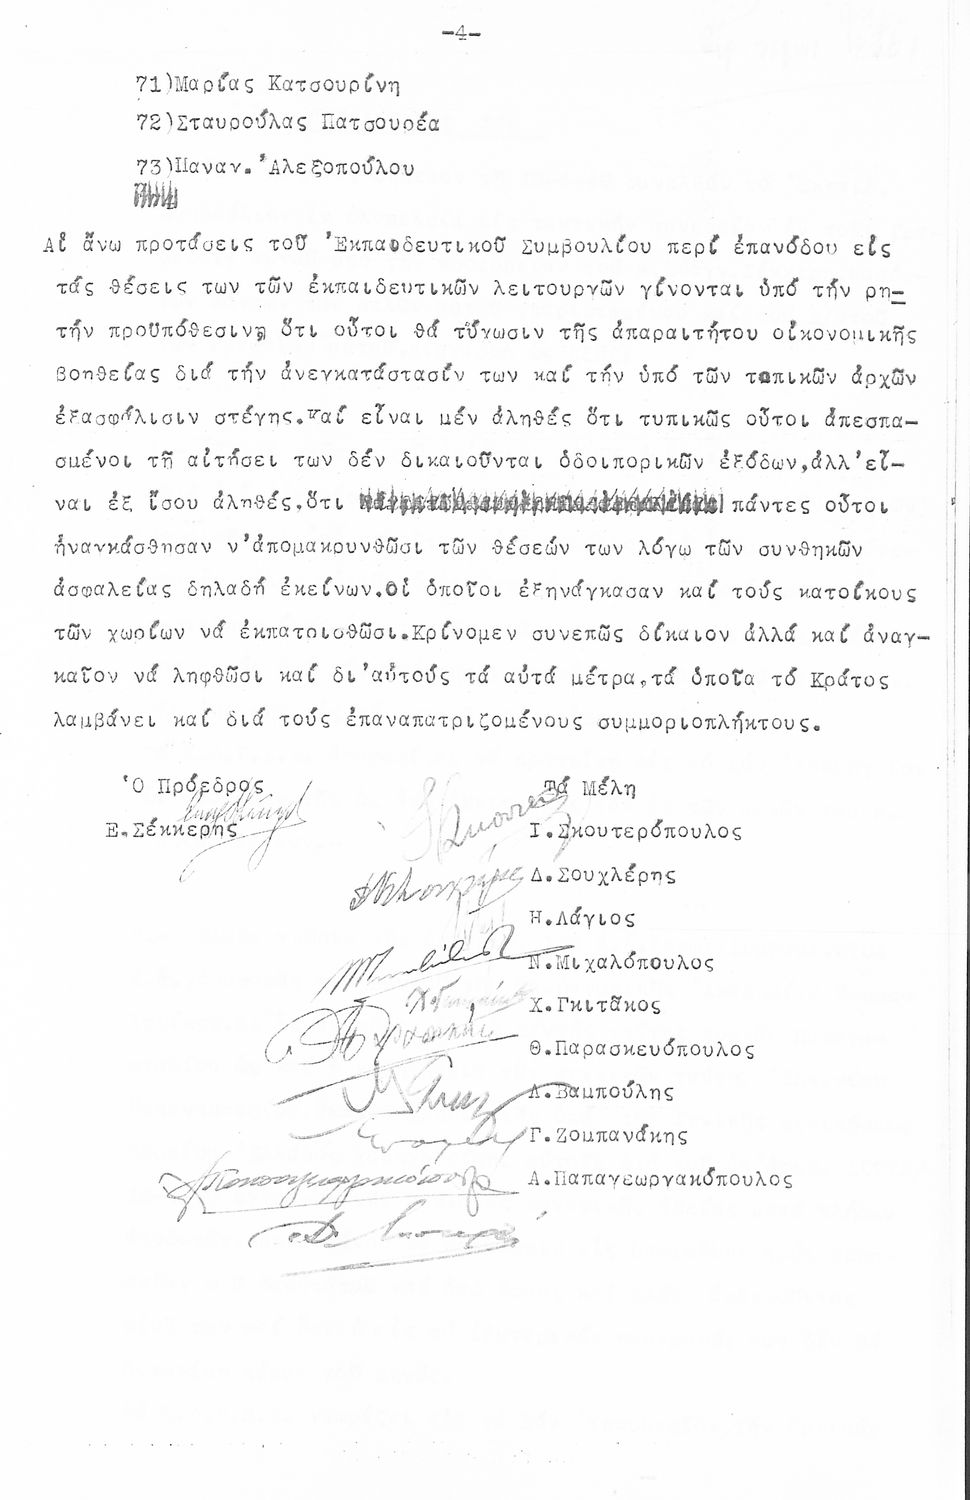 -4-
71)Μαρίας Κατσουρίνη
72)Σταυρούλας Πατσουρέα
73)Παναγ. Ἀλεξοπούλου
Αἱ ἄνω προτάσεις τοῦ Ἐκπαιδευτικοῦ Συμβουλίου περί ἐπανόδου εἰς
τάς θέσεις των τῶν ἐκπαιδευτικῶν λειτουργῶν γίνονται ὑπό τήν ρη-
τήν προϋπόθεσιν, ὅτι οὗτοι θά τύχωσιν τῆς ἀπαραιτήτου οἰκονομικῆς
βοηθείας διά τήν ἀνεγκατάστασίν των καί τήν ὑπό τῶν τοπικῶν ἀρχῶν
ἐξασφάλισιν στέγης.Καί εἶναι μέν ἀληθές ὅτι τυπικῶς οὗτοι ἀπεσπα-
σμένοι τῇ αἰτήσει των δέν δικαιοῦνται ὁδοιπορικῶν ἐξόδων,ἀλλ'εἶ-
ναι ἐξ ἴσου ἀληθές,ὅτι πάντες οὗτοι
ἠναγκάσθησαν ν'ἀπομακρυνθῶσι τῶν θέσεών των λόγω τῶν συνθηκῶν
ἀσφαλείας δηλαδή ἐκείνων.Οἱ ὁποῖοι ἐξηνάγκασαν καί τούς κατοίκους
τῶν χωρίων νά ἐκπατρισθῶσι.Κρίνομεν συνεπῶς δίκαιον ἀλλά καί ἀναγ-
καῖον νά ληφθῶσι καί δι'αὐτούς τά αὐτά μέτρα,τά ὁποῖα τό Κράτος
λαμβάνει καί διά τούς ἐπαναπατριζομένους συμμοριοπλήκτους.
Ὁ Πρόεδρος Τά Μέλη
Ε.Σέκκερης Ι.Σκουτερόπουλος
Δ.Σουχλέρης
Η.Λάγιος
Ν.Μιχαλόπουλος
Χ.Γκιτᾶκος
Θ.Παρασκευόπουλος
Λ.Βαμπούλης
Γ.Ζομπανάκης
Α.Παπαγεωργακόπουλος